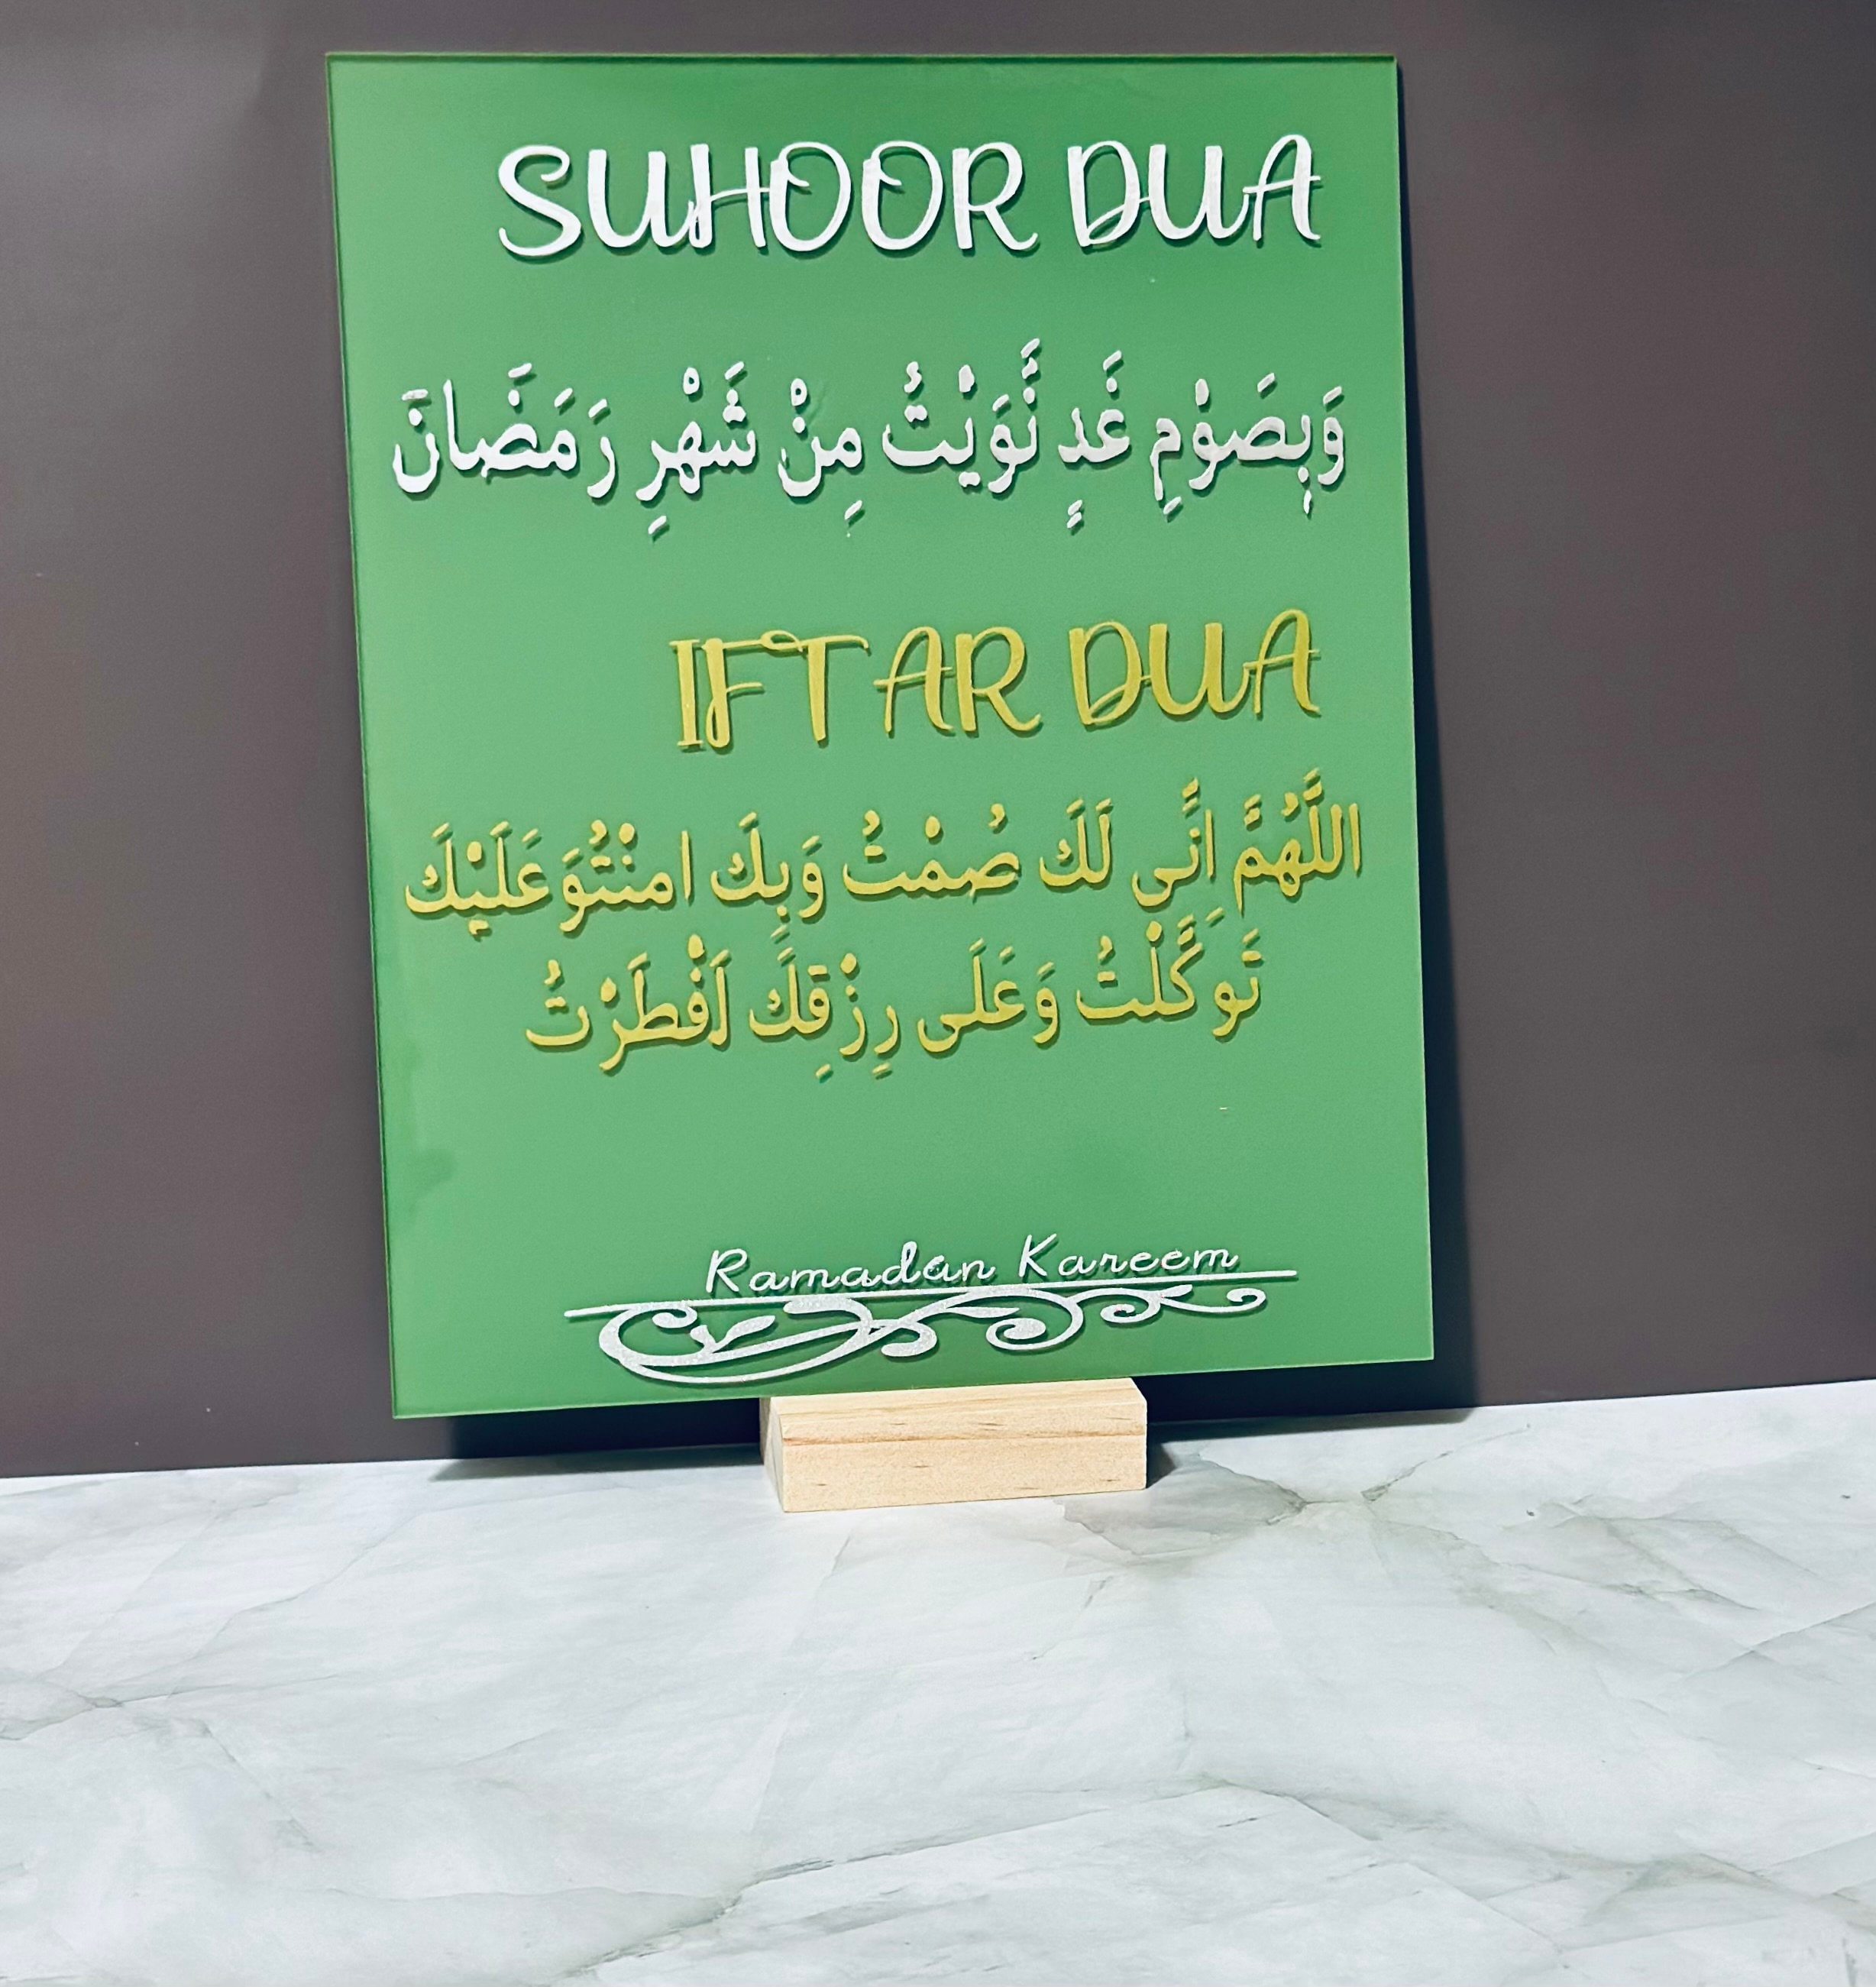 SUHOOR DUA
وَبِصَوْمِ غَدٍ نَّوَيْتُ مِنْ شَهْرِ رَمَضَانَ
IFTAR DUA
اللَّهُمَّ اِنَّى لَكَ صُمْتُ وَبِكَ امنْتُوَعَلَيْكَ
تَوَكَّلْتُ وَعَلَى رِزْقِكَ اَفْطَرْتُ
Ramadan Kareem